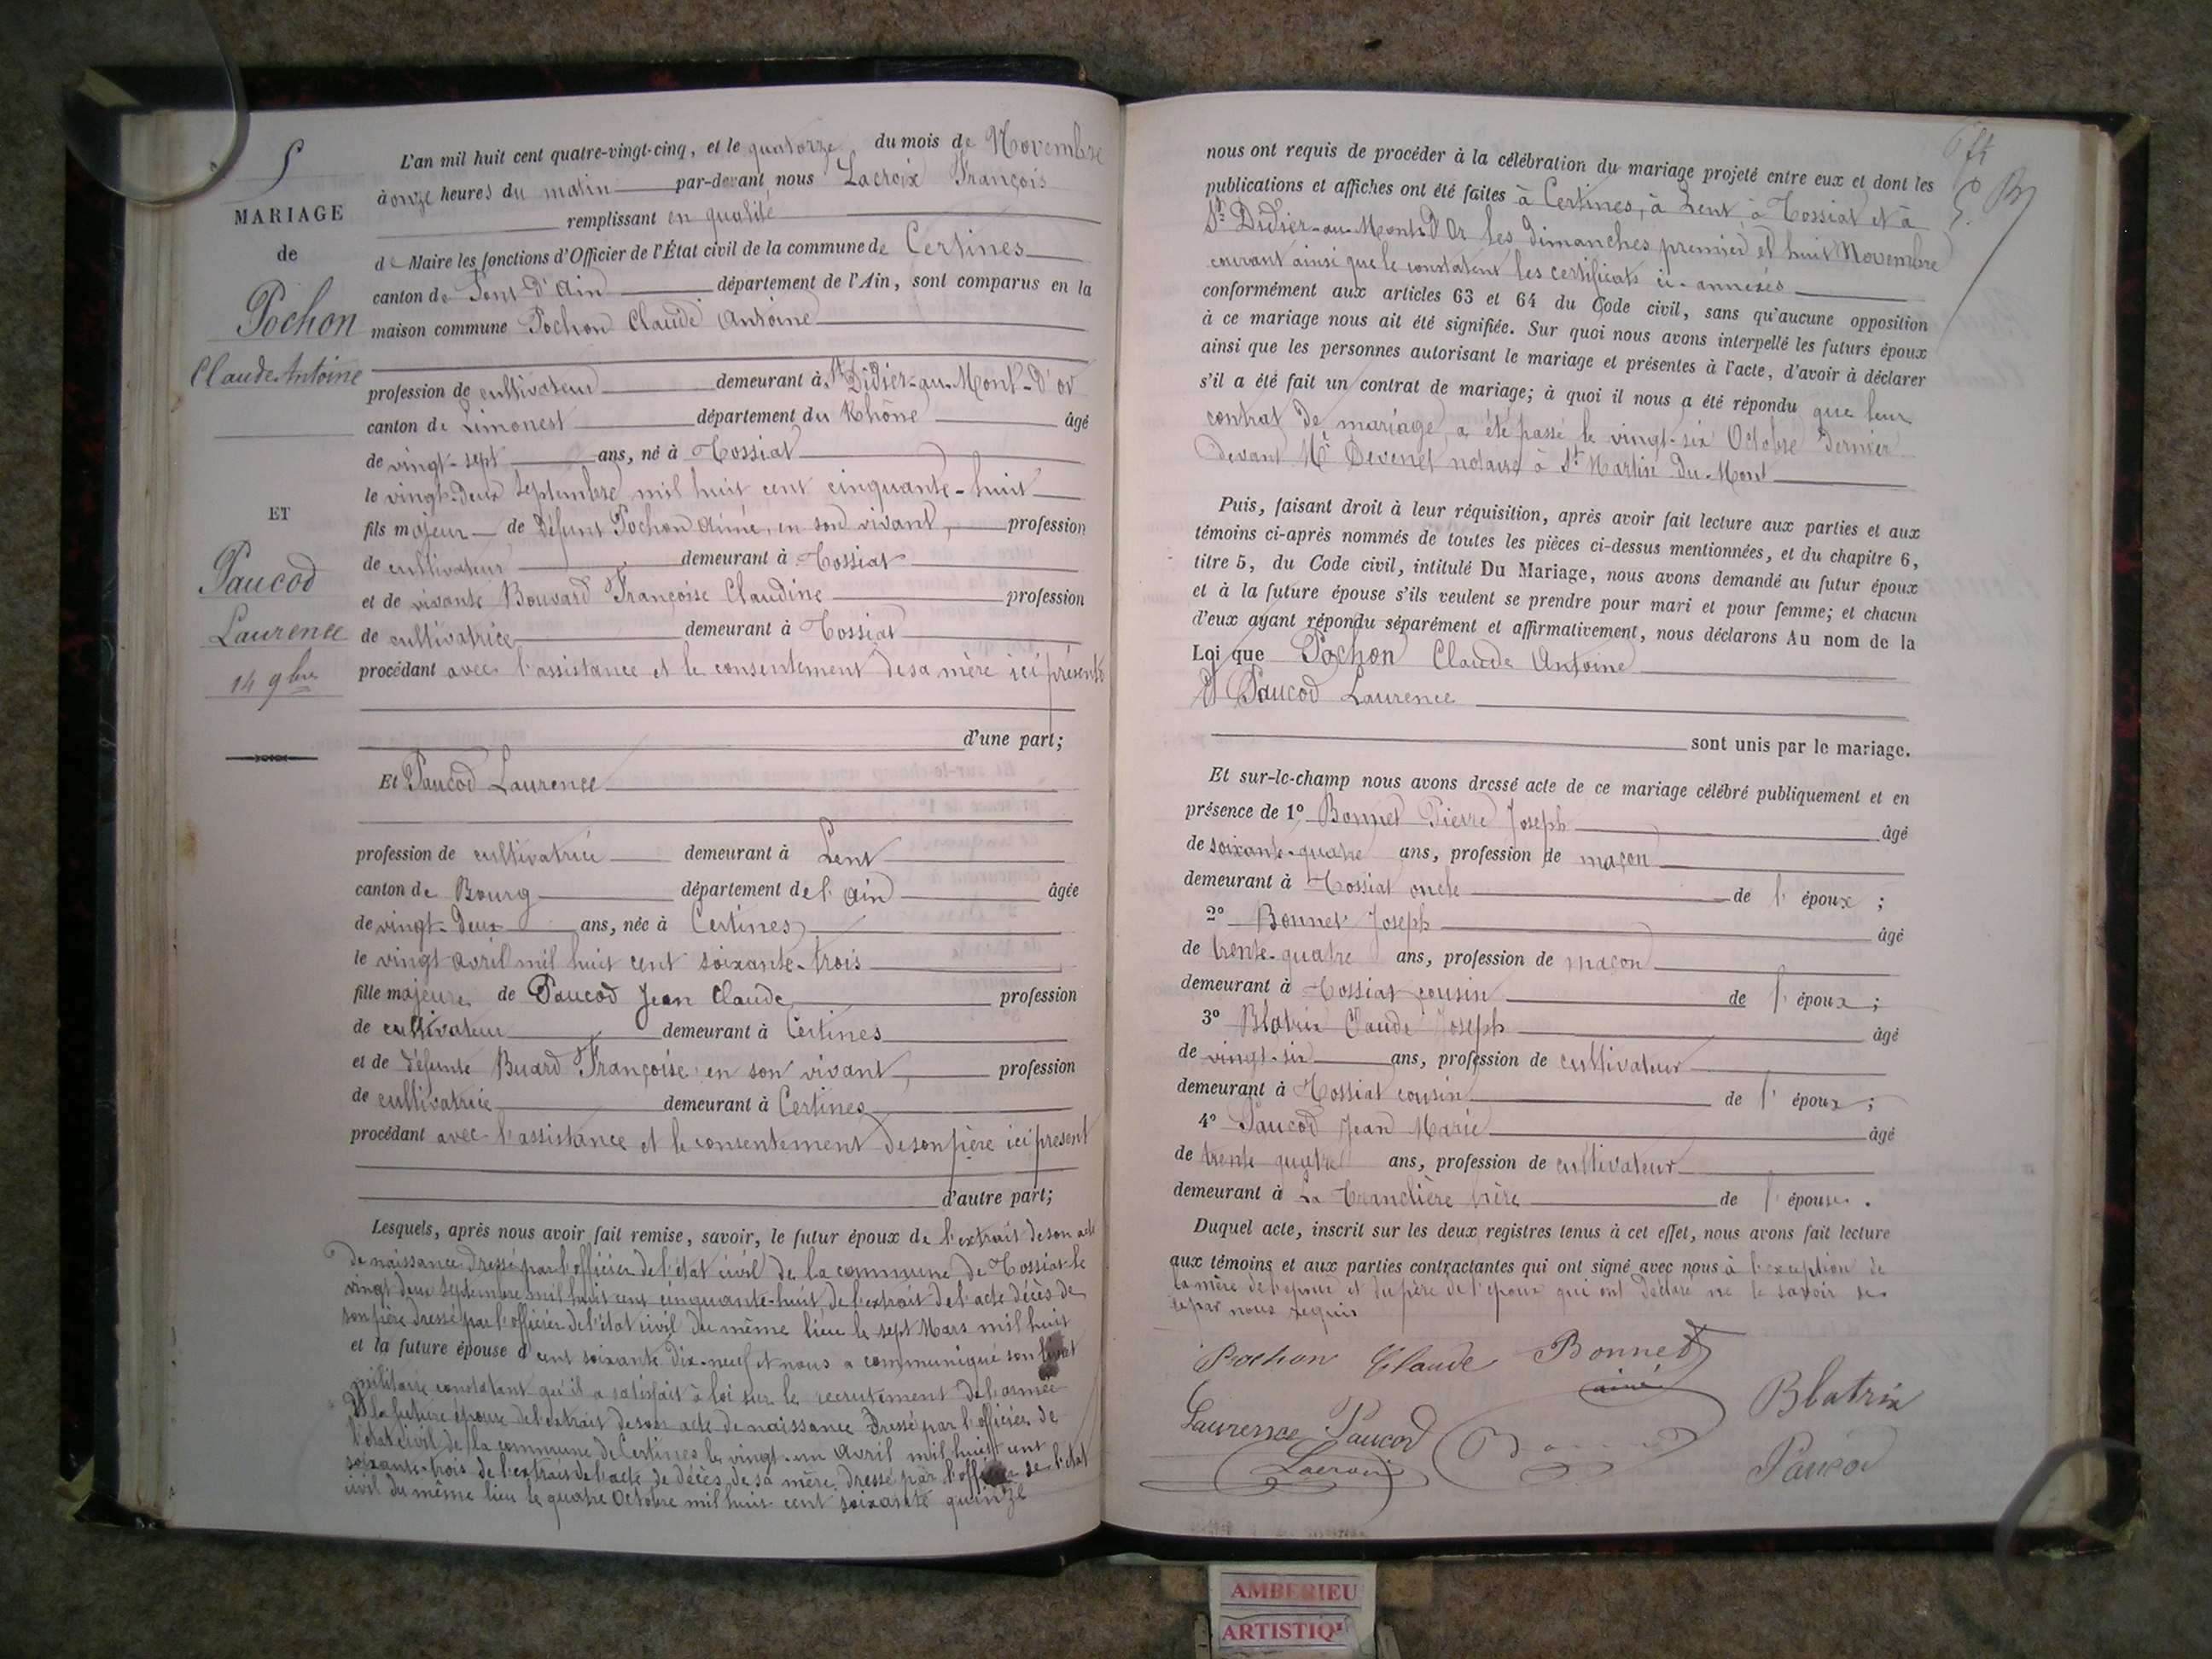 5
MARIAGE
de
Pochon
Claude Antoine
ET
Paucod
Laurence
14 9bre
L'an mil huit cent quatre-vingt-cinq, et le quatorze du mois de Novembre
à onze heures du matin par-devant nous Lacroix François
remplissant en qualité
de Maire les fonctions d'Officier de l'État civil de la commune de Certines
canton de Pont d'Ain département de l'Ain, sont comparus en la
maison commune Pochon Claude Antoine
profession de cultivateur demeurant à St Didier-au-Mont-d'or
canton de Limonest département du Rhône âgé
de vingt-sept ans, né à Tossiat
le vingt-deux septembre mil huit cent cinquante-huit
fils majeur de défunt Pochon Aimé, en son vivant, profession
de cultivateur demeurant à Tossiat
et de vivante Bouvard Françoise Claudine profession
de cultivatrice demeurant à Tossiat
procédant avec l'assistance et le consentement de sa mère ici présente
d'une part;
Et Paucod Laurence
profession de cultivatrice demeurant à Lent
canton de Bourg département de l'Ain âgée
de vingt-deux ans, née à Certines
le vingt avril mil huit cent soixante-trois
fille majeure de Paucod Jean Claude profession
de cultivateur demeurant à Certines
et de défunte Buard Françoise en son vivant, profession
de cultivatrice demeurant à Certines
procédant avec l'assistance et le consentement de son père ici présent
d'autre part;
Lesquels, après nous avoir fait remise, savoir, le futur époux de l'extrait de son acte
de naissance dressé par l'officier de l'état civil de la commune de Tossiat le
vingt deux septembre mil huit cent cinquante-huit, de l'extrait de l'acte décès de
son père dressé par l'officier de l'état civil du même lieu le sept Mars mil huit
et la future épouse d cent soixante dix-neuf et nous a communiqué son livret
militaire constatant qu'il a satisfait à loi sur le recrutement de l'armée
Et la future épouse de l'extrait de son acte de naissance dressé par l'officier de
l'état civil de la commune de Certines le vingt-un avril mil huit cent
soixante-trois de l'extrait de l'acte de décès de sa mère dressé par l'officier de l'état
civil du même lieu le quatre Octobre mil huit cent soixante quinze
nous ont requis de procéder à la célébration du mariage projeté entre eux et dont les
publications et affiches ont été faites à Certines, à Lent, à Tossiat et à
St Didier-au-Mont-d'Or les dimanches premier et huit Novembre
courant ainsi que le constatent les certificats ci-annexés
conformément aux articles 63 et 64 du Code civil, sans qu'aucune opposition
à ce mariage nous ait été signifiée. Sur quoi nous avons interpellé les futurs époux
ainsi que les personnes autorisant le mariage et présentes à l'acte, d'avoir à déclarer
s'il a été fait un contrat de mariage; à quoi il nous a été répondu que leur
contrat de mariage a été passé le vingt-six Octobre dernier
devant Me Devenet notaire à St Martin-du-Mont
Puis, faisant droit à leur réquisition, après avoir fait lecture aux parties et aux
témoins ci-après nommés de toutes les pièces ci-dessus mentionnées, et du chapitre 6,
titre 5, du Code civil, intitulé Du Mariage, nous avons demandé au futur époux
et à la future épouse s'ils veulent se prendre pour mari et pour femme; et chacun
d'eux ayant répondu séparément et affirmativement, nous déclarons Au nom de la
Loi que Pochon Claude Antoine
Et Paucod Laurence
sont unis par le mariage.
Et sur-le-champ nous avons dressé acte de ce mariage célébré publiquement et en
présence de 1º Bonnet Pierre Joseph âgé
de soixante-quatre ans, profession de maçon
demeurant à Tossiat oncle de l'époux;
2º Bonnet Joseph âgé
de trente-quatre ans, profession de maçon
demeurant à Tossiat cousin de l'époux;
3º Blatrix Claude Joseph âgé
de vingt-six ans, profession de cultivateur
demeurant à Tossiat cousin de l'époux;
4º Paucod Jean Marie âgé
de trente quatre ans, profession de cultivateur
demeurant à La Tranclière frère de l'épouse.
Duquel acte, inscrit sur les deux registres tenus à cet effet, nous avons fait lecture
aux témoins et aux parties contractantes qui ont signé avec nous à l'exception de
la mère de l'époux et du père de l'époux qui ont déclaré ne le savoir de
ce par nous requis
Pochon Claude Bonnet
ainé
Blatrix
Laurence Paucod
Lacroix
Paucod
AMBERIEU
ARTISTIQ